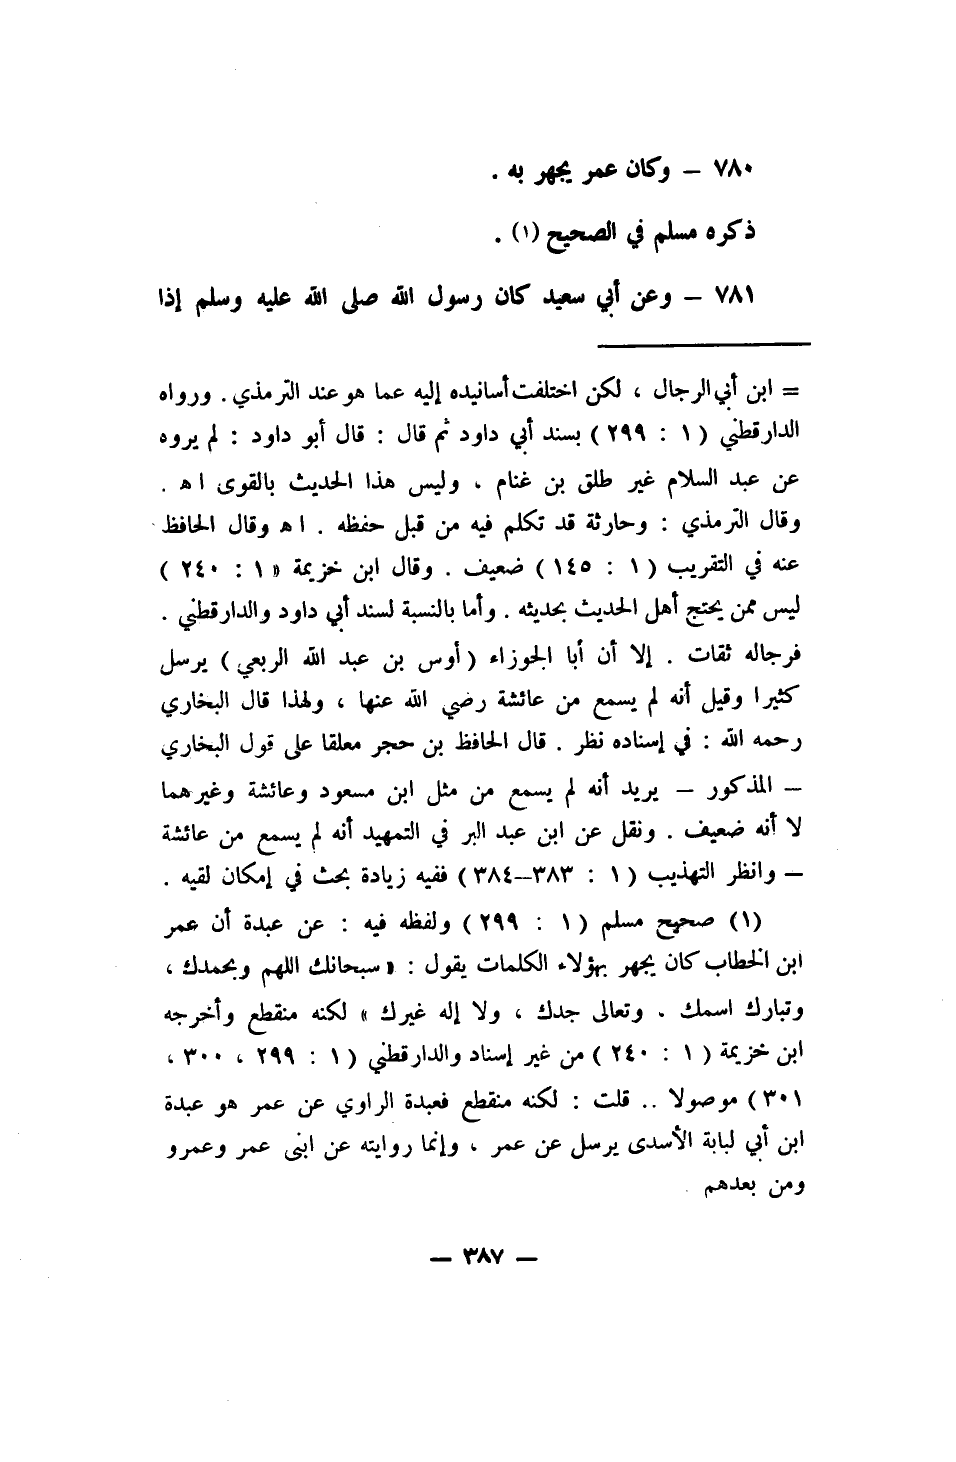 ٧٨٠ – وكان عمر يجهر به .
ذكره مسلم في الصحيح (١) .
٧٨١ – وعن أبي سعيد كان رسول الله صلى الله عليه وسلم إذا
= ابن أبي الرجال ، لكن اختلفت أسانيده إليه عما هو عند الترمذي . ورواه
الدارقطني ( ١ : ٢٩٩ ) بسند أبي داود ثم قال : قال أبو داود : لم يروه
عن عبد السلام غير طلق بن غنام ، وليس هذا الحديث بالقوى ا ه .
وقال الترمذي : وحارثة قد تكلم فيه من قبل حفظه . ا ه وقال الحافظ
عنه في التقريب ( ١ : ١٤٥ ) ضعيف . وقال ابن خزيمة « ١ : ٢٤٠ )
ليس ممن يحتج أهل الحديث بحديثه . وأما بالنسبة لسند أبي داود والدارقطني .
فرجاله ثقات . إلا أن أبا الجوزاء ( أوس بن عبد الله الربعي ) يرسل
كثيرا وقيل أنه لم يسمع من عائشة رضي الله عنها ، ولهذا قال البخاري
رحمه الله : في إسناده نظر . قال الحافظ بن حجر معلقا على قول البخاري
– المذكور – يريد أنه لم يسمع من مثل ابن مسعود وعائشة وغيرهما
لا أنه ضعيف . ونقل عن ابن عبد البر في التمهيد أنه لم يسمع من عائشة
– وانظر التهذيب ( ١ : ٣٨٣–٣٨٤ ) ففيه زيادة بحث في إمكان لقيه .
(١) صحيح مسلم ( ١ : ٢٩٩ ) ولفظه فيه : عن عبدة أن عمر
ابن الخطاب كان يجهر بهؤلاء الكلمات يقول : « سبحانك اللهم وبحمدك ،
وتبارك اسمك . وتعالى جدك ، ولا إله غيرك » لكنه منقطع وأخرجه
ابن خزيمة ( ١ : ٢٤٠ ) من غير إسناد والدارقطني ( ١ : ٢٩٩ ، ٣٠٠ ،
٣٠١ ) موصولا .. قلت : لكنه منقطع فعبدة الراوي عن عمر هو عبدة
ابن أبي لبابة الأسدى يرسل عن عمر ، وإنما روايته عن ابنى عمر وعمرو
ومن بعدهم .
– ٣٨٧ –